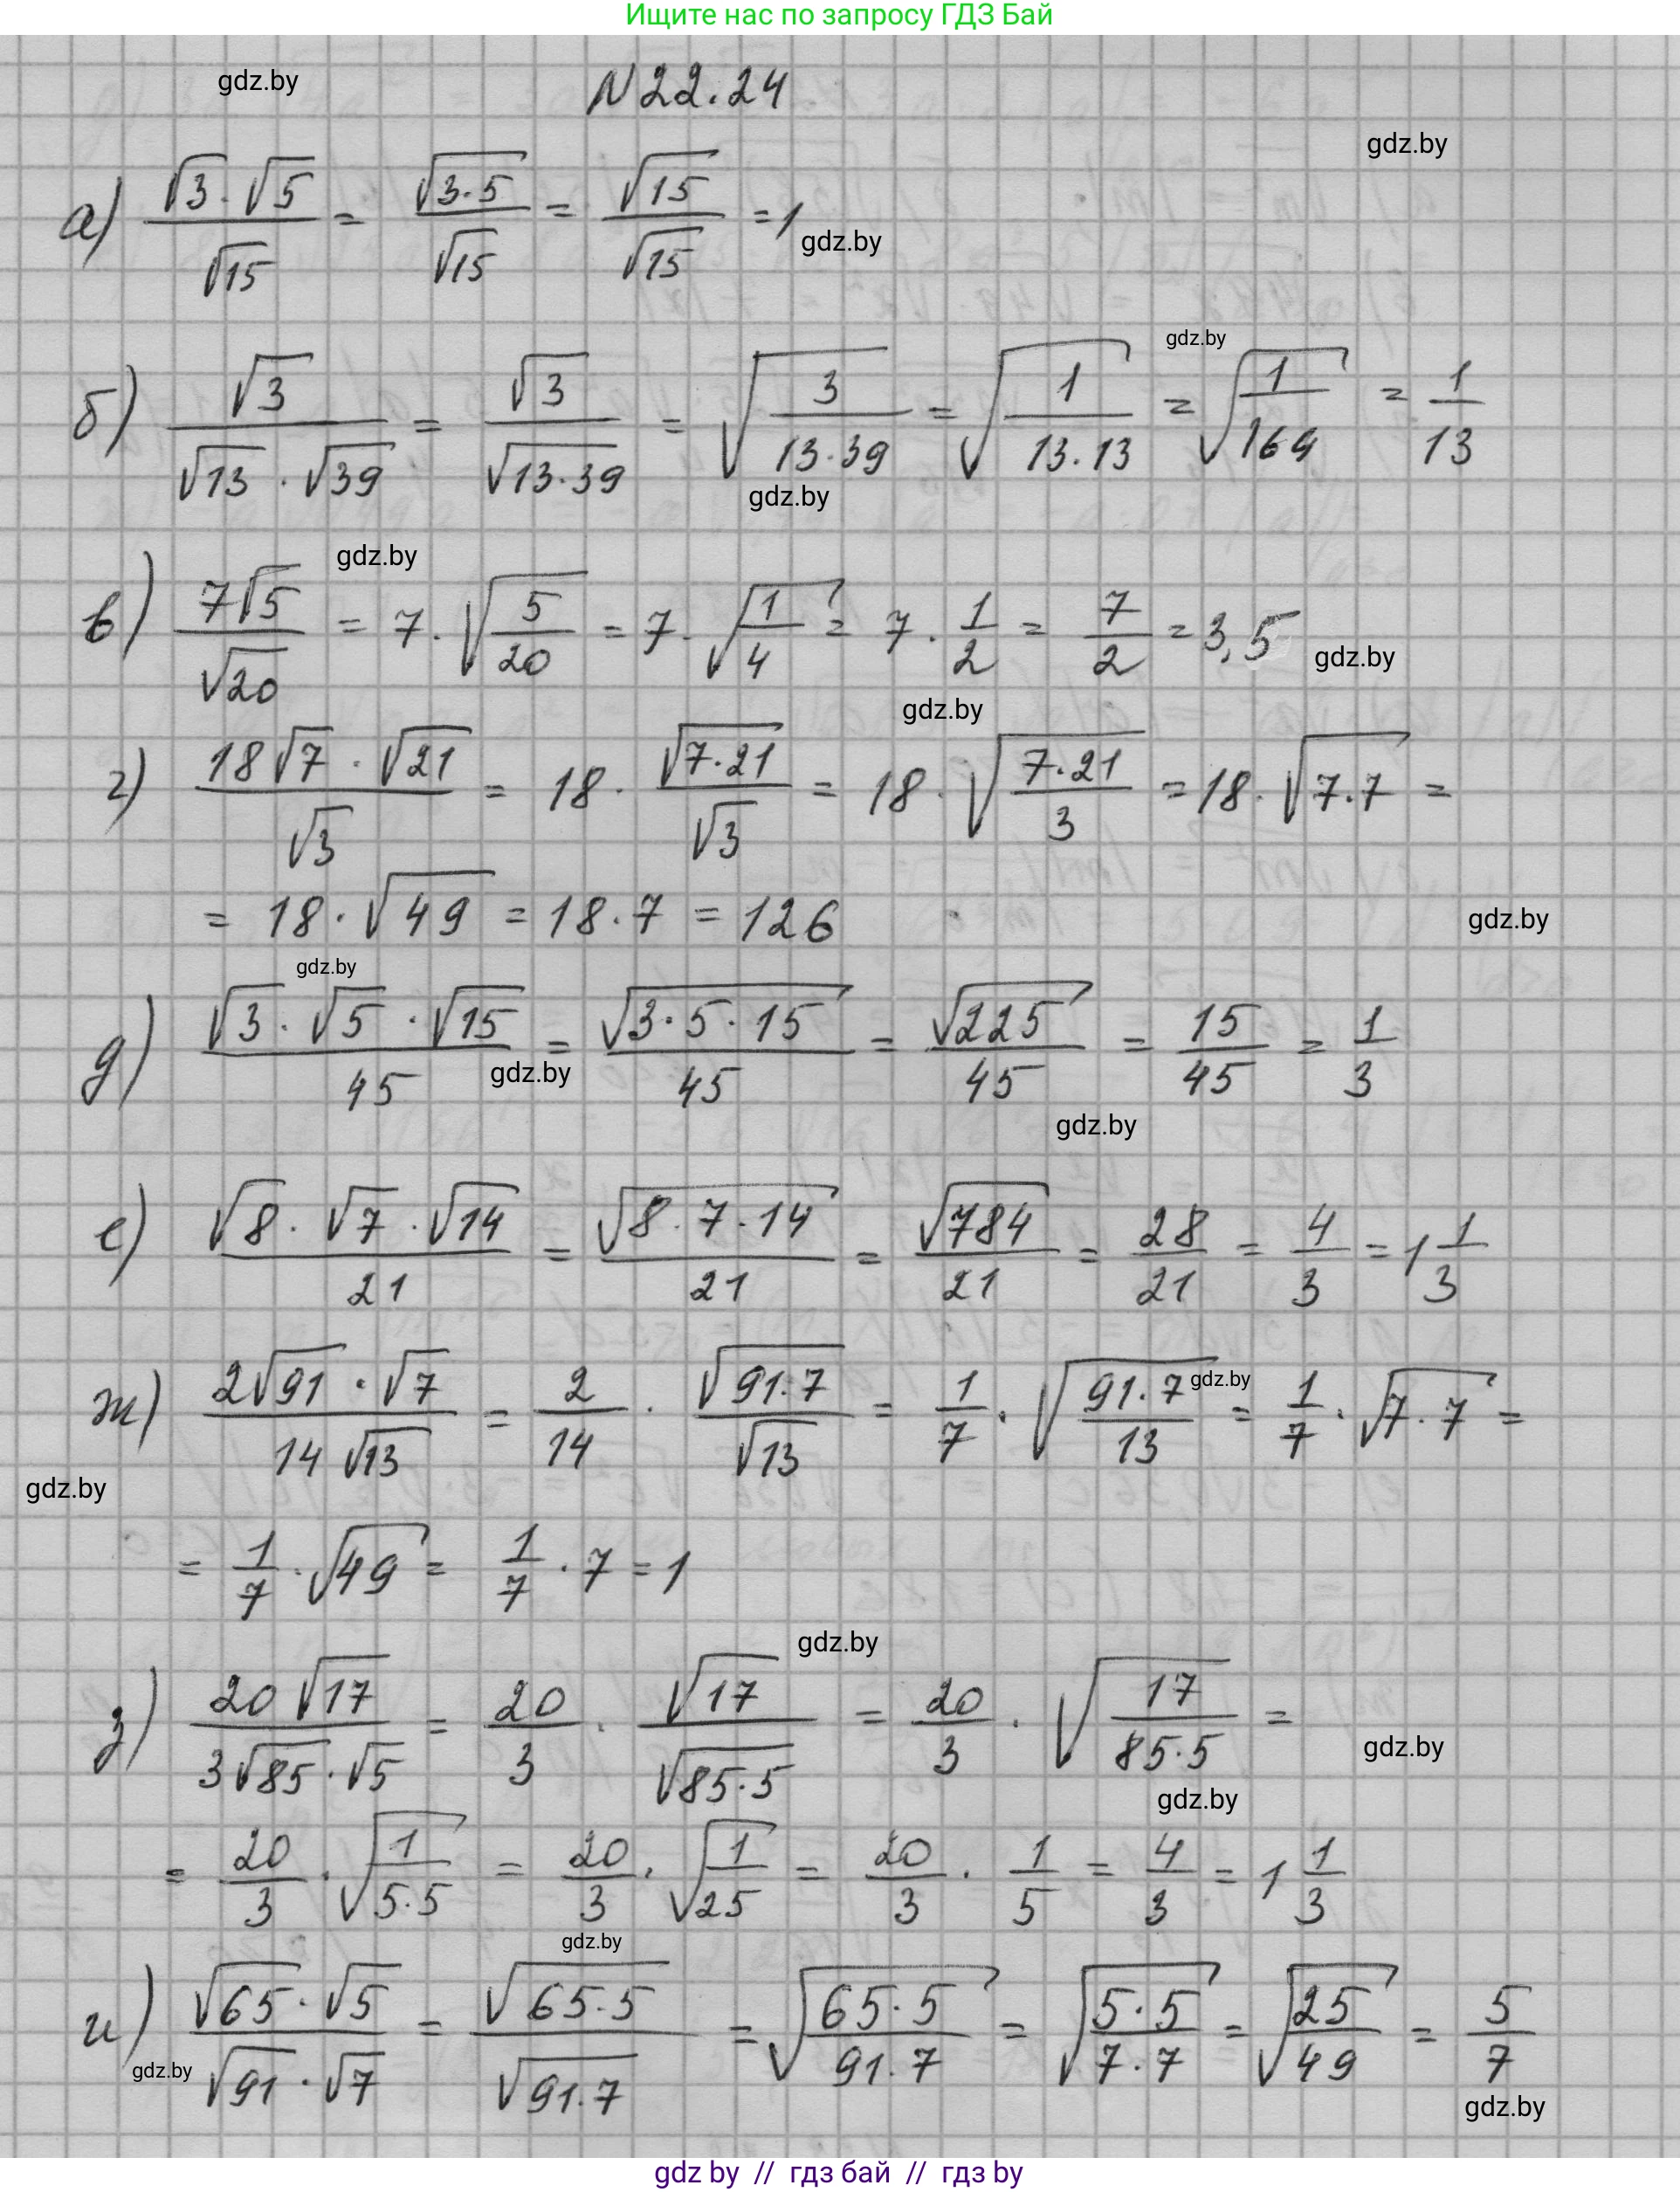 Ищите нас по запросу ГДЗ Бай
gdz.by
N 22.24
gdz.by
а) √3 · √5 / √15 = √3·5 / √15 = √15 / √15 = 1
gdz.by
gdz.by
б) √3 / √13 · √39 = √3 / √13·39 = √(3 / 13·39) = √(1 / 13·13) = √(1 / 169) = 1/13
gdz.by
gdz.by
в) 7√5 / √20 = 7 · √(5/20) = 7 · √(1/4) = 7 · 1/2 = 7/2 = 3,5
gdz.by
gdz.by
г) 18√7 · √21 / √3 = 18 · √7·21 / √3 = 18 · √(7·21 / 3) = 18 · √7·7 =
= 18 · √49 = 18 · 7 = 126
gdz.by
gdz.by
д) √3 · √5 · √15 / 45 = √3·5·15 / 45 = √225 / 45 = 15/45 = 1/3
gdz.by
gdz.by
е) √8 · √7 · √14 / 21 = √8·7·14 / 21 = √784 / 21 = 28/21 = 4/3 = 1 1/3
ж) 2√91 · √7 / 14√13 = 2/14 · √91·7 / √13 = 1/7 · √(91·7 / 13) = 1/7 · √7·7 =
gdz.by
gdz.by
= 1/7 · √49 = 1/7 · 7 = 1
gdz.by
з) 20√17 / 3√85 · √5 = 20/3 · √17 / √85·5 = 20/3 · √(17 / 85·5) =
gdz.by
gdz.by
= 20/3 · √(1 / 5·5) = 20/3 · √(1/25) = 20/3 · 1/5 = 4/3 = 1 1/3
gdz.by
и) √65 · √5 / √91 · √7 = √65·5 / √91·7 = √(65·5 / 91·7) = √(5·5 / 7·7) = √(25/49) = 5/7
gdz.by
gdz.by
gdz by // гдз бай // гдз by